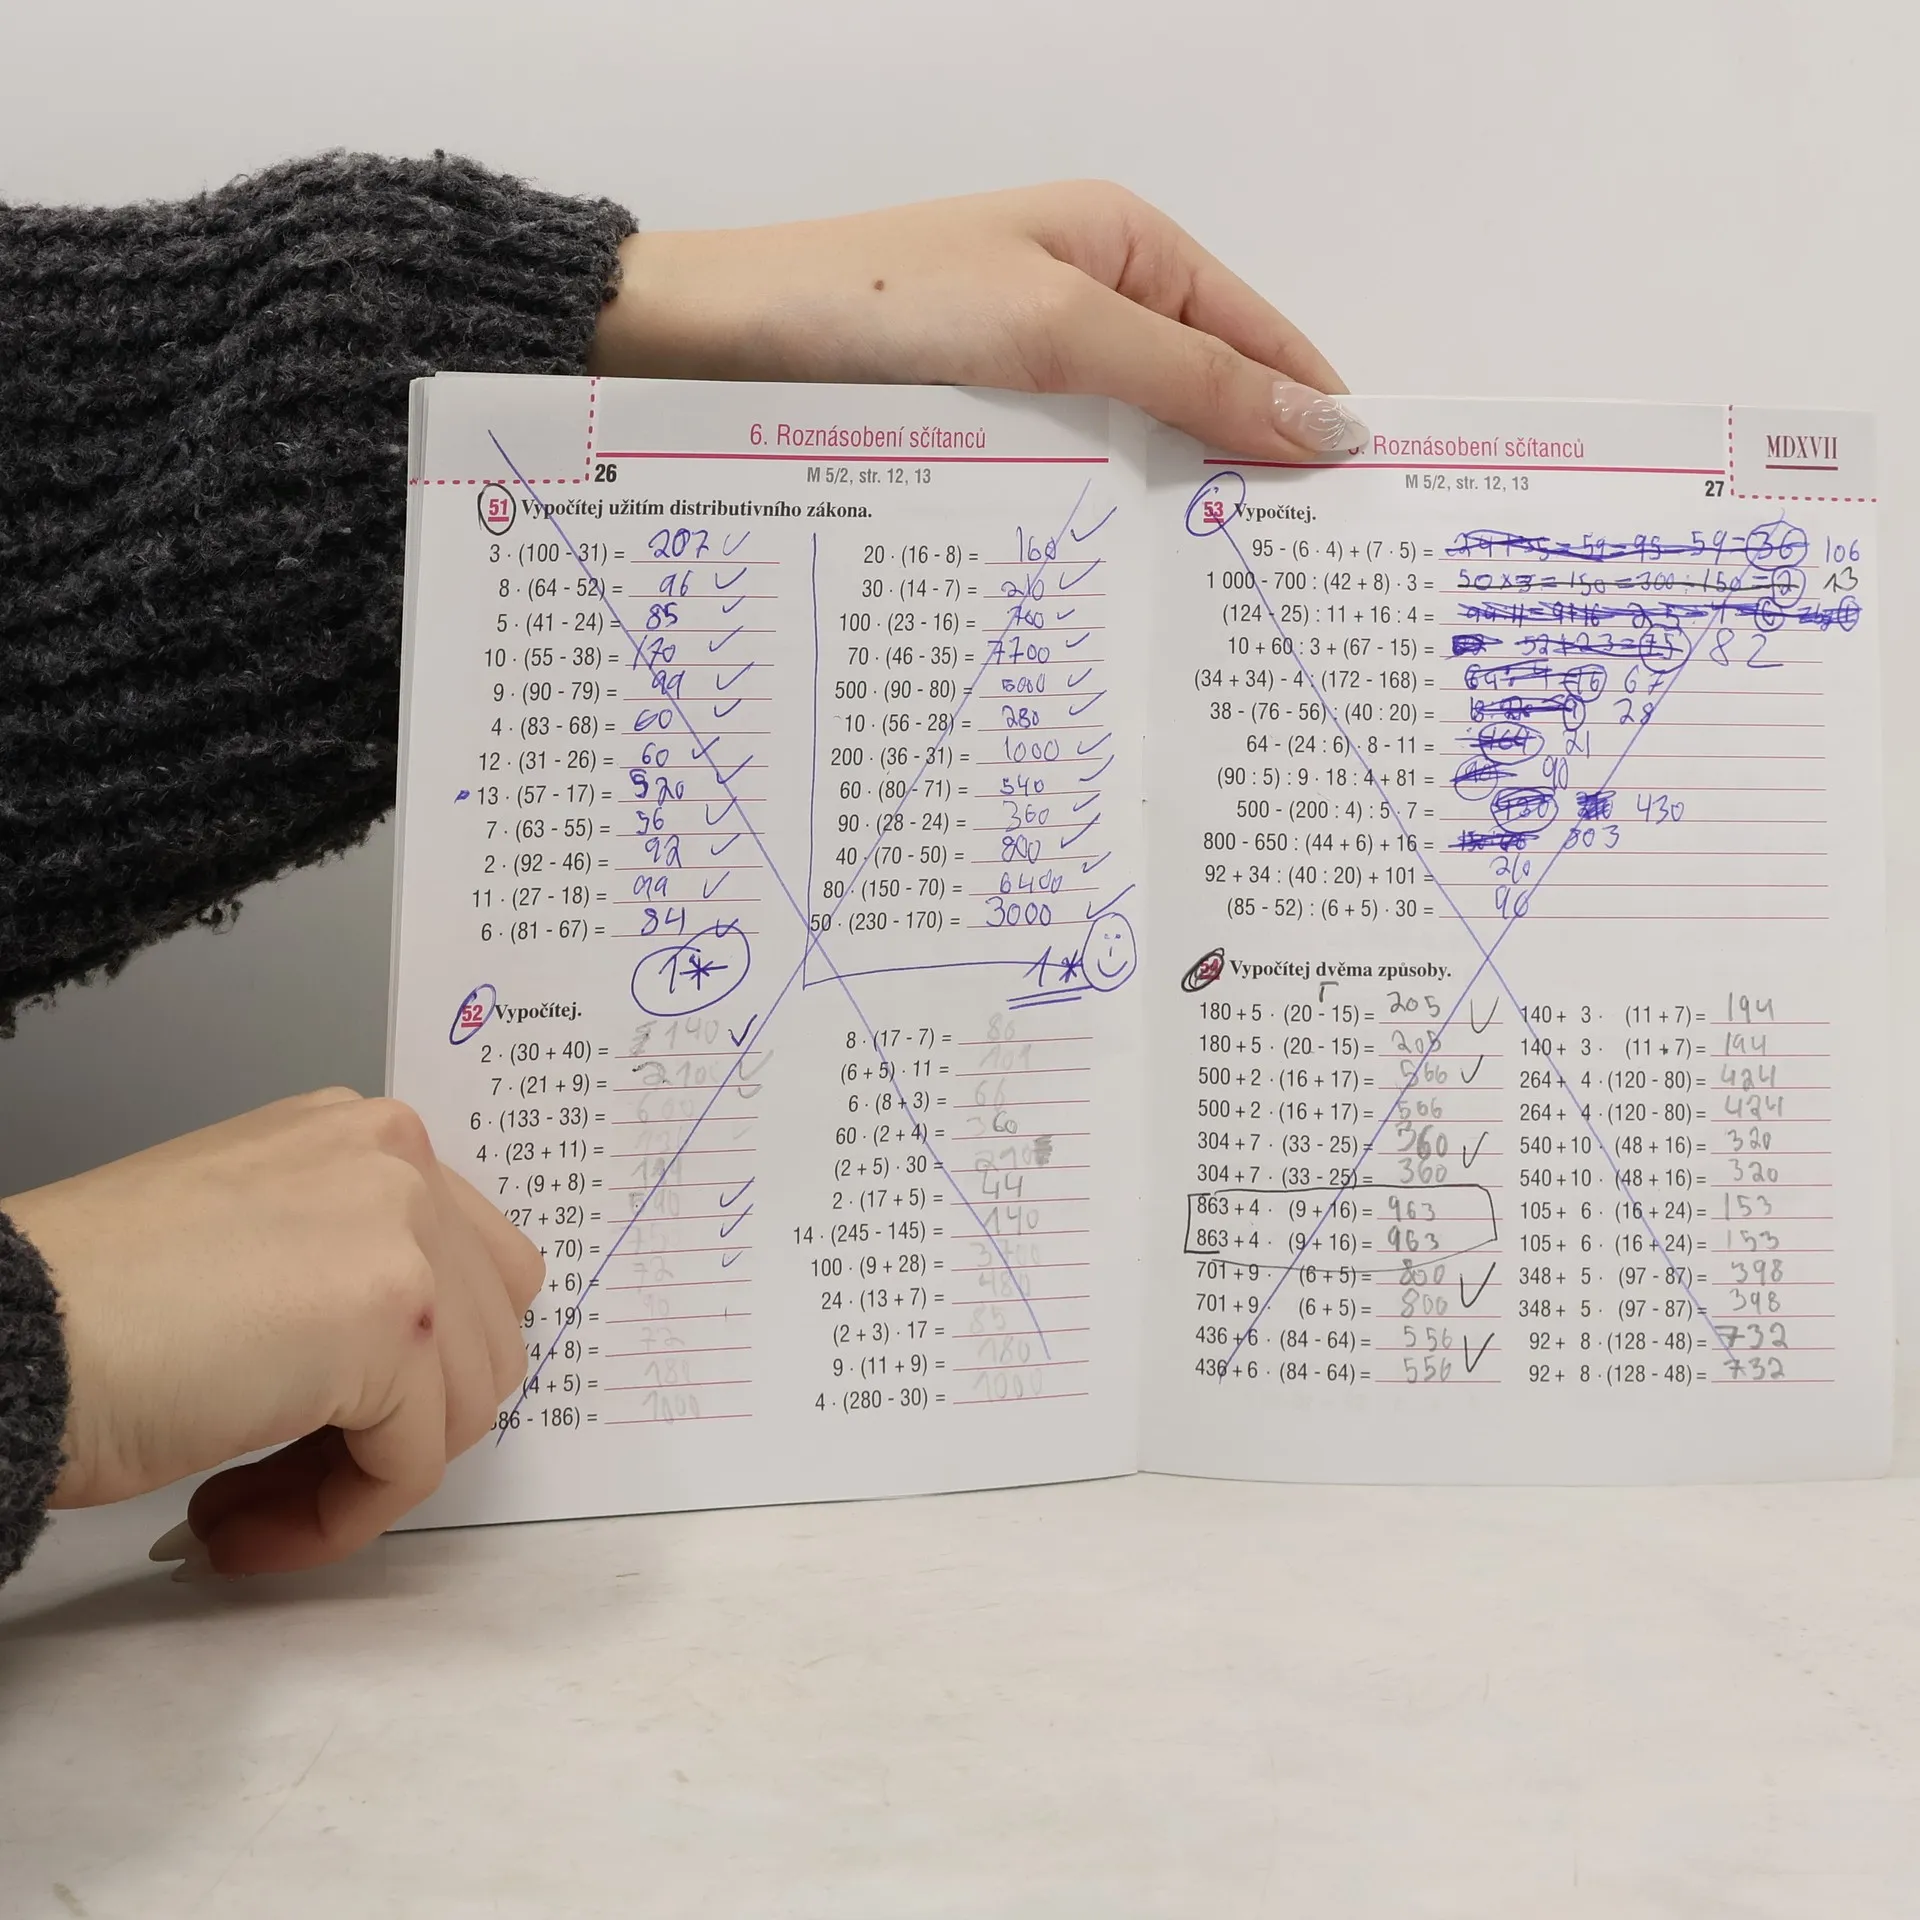 6. Roznásobení sčítanců
26
M 5/2, str. 12, 13
51 Vypočítej užitím distributivního zákona.
3 · (100 - 31) = 207
8 · (64 - 52) = 96
5 · (41 - 24) = 85
10 · (55 - 38) = 170
9 · (90 - 79) = 99
4 · (83 - 68) = 60
12 · (31 - 26) = 60
13 · (57 - 17) = 520
7 · (63 - 55) = 56
2 · (92 - 46) = 92
11 · (27 - 18) = 99
6 · (81 - 67) = 84
1*
20 · (16 - 8) = 160
30 · (14 - 7) = 210
100 · (23 - 16) = 700
70 · (46 - 35) = 7700
500 · (90 - 80) = 5000
10 · (56 - 28) = 280
200 · (36 - 31) = 1000
60 · (80 - 71) = 540
90 · (28 - 24) = 360
40 · (70 - 50) = 800
80 · (150 - 70) = 6400
50 · (230 - 170) = 3000
1*
52 Vypočítej.
2 · (30 + 40) = 140
7 · (21 + 9) = 210
6 · (133 - 33) = 600
4 · (23 + 11) =
7 · (9 + 8) =
(27 + 32) =
+ 70) =
+ 6) = 72
9 - 19) = 90
4 + 8) = 72
(4 + 5) = 180
86 - 186) = 1000
8 · (17 - 7) = 80
(6 + 5) · 11 =
6 · (8 + 3) = 66
60 · (2 + 4) = 360
(2 + 5) · 30 = 210
2 · (17 + 5) = 44
14 · (245 - 145) = 140
100 · (9 + 28) = 3700
24 · (13 + 7) = 480
(2 + 3) · 17 = 85
9 · (11 + 9) = 180
4 · (280 - 30) = 1000
Roznásobení sčítanců
MDXVII
M 5/2, str. 12, 13
27
53 Vypočítej.
95 - (6 · 4) + (7 · 5) = 106
1 000 - 700 : (42 + 8) · 3 = 50 x 3 = 150 = 300 : 150 = 2 13
(124 - 25) : 11 + 16 : 4 =
10 + 60 : 3 + (67 - 15) = 82
(34 + 34) - 4 : (172 - 168) = 67
38 - (76 - 56) : (40 : 20) = 28
64 - (24 : 6) · 8 - 11 = 21
(90 : 5) : 9 · 18 : 4 + 81 = 90
500 - (200 : 4) : 5 · 7 = 430
800 - 650 : (44 + 6) + 16 = 803
92 + 34 : (40 : 20) + 101 = 210
(85 - 52) : (6 + 5) · 30 = 90
54 Vypočítej dvěma způsoby.
180 + 5 · (20 - 15) = 205
180 + 5 · (20 - 15) = 205
500 + 2 · (16 + 17) = 566
500 + 2 · (16 + 17) = 566
304 + 7 · (33 - 25) = 360
304 + 7 · (33 - 25) = 360
863 + 4 · (9 + 16) = 963
863 + 4 · (9 + 16) = 963
701 + 9 · (6 + 5) = 800
701 + 9 · (6 + 5) = 800
436 + 6 · (84 - 64) = 556
436 + 6 · (84 - 64) = 556
140 + 3 · (11 + 7) = 194
140 + 3 · (11 + 7) = 194
264 + 4 · (120 - 80) = 424
264 + 4 · (120 - 80) = 424
540 + 10 · (48 + 16) = 320
540 + 10 · (48 + 16) = 320
105 + 6 · (16 + 24) = 153
105 + 6 · (16 + 24) = 153
348 + 5 · (97 - 87) = 398
348 + 5 · (97 - 87) = 398
92 + 8 · (128 - 48) = 732
92 + 8 · (128 - 48) = 732